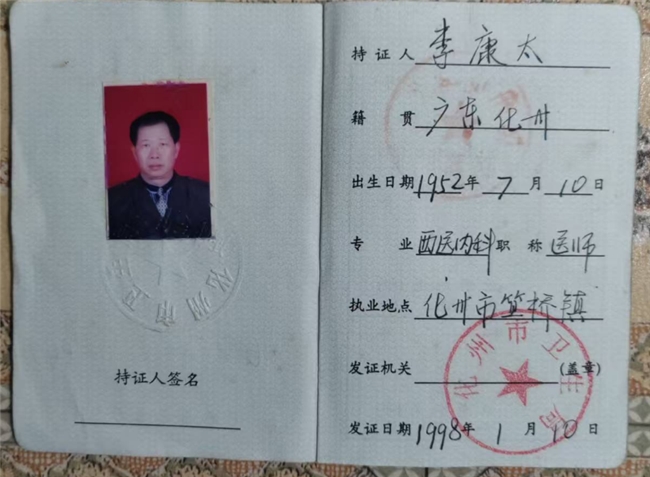 化州市卫
持证人签名
持证人 李康太
籍贯 广东化州
出生日期 1952年7月10日
专业 西医内科 职称 医师
执业地点 化州市笪桥镇
发证机关 (盖章)
化州市卫生局
发证日期 1998年1月10日